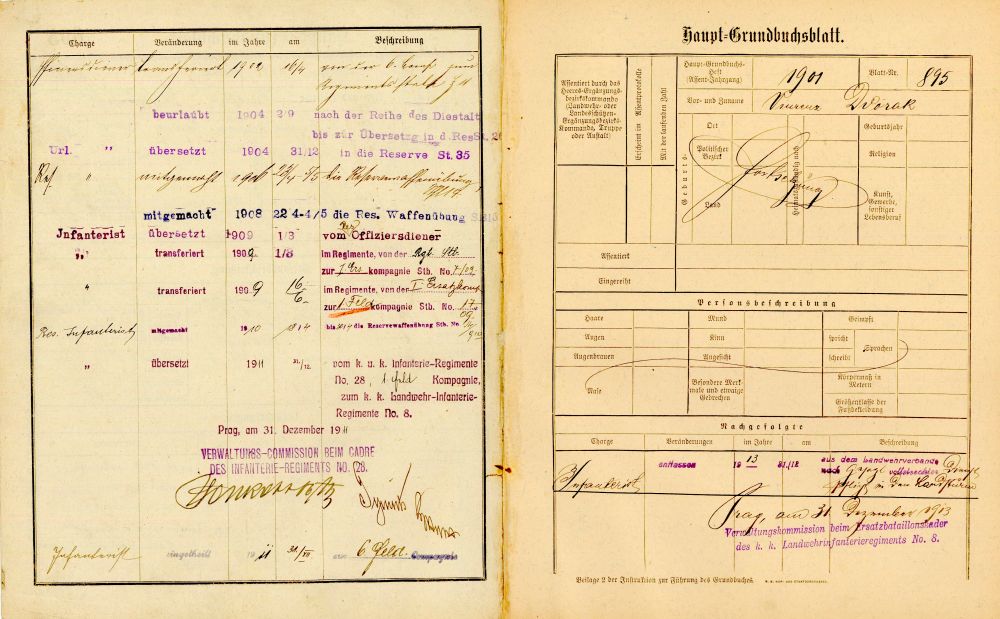 Charge Veränderung im Jahre am Beschreibung
transferirt 1902 16/4 von der 6. Comp. zum
beurlaubt 1904 2/9 nach der Reihe des Diestalt
bis zur Übersetzg in d. Res St.
Url. " übersetzt 1904 31/12 in die Reserve St. 35
Res. " mitgemacht 1906 die Reservewaffenübung
mitgemacht 1908 22 4-4/5 die Res. Waffenübung
Infanterist übersetzt 1909 1/3 vom Offiziersdiener
" transferiert 1909 1/3 im Regimente, von der Rgts. Stb.
zur kompagnie Stb. No.
" transferiert 1909 16/6. im Regimente, von der I. Ersatzkomp
zur 1 Feld kompagnie Stb. No. 17
09.
Res. Infanterist mitgemacht 1910 die Reservewaffenübung Stb. No.
" übersetzt 1911 31/12. vom k. u. k. Infanterie-Regimente
No. 28, 1. Feld Kompagnie,
zum k. k. Landwehr-Infanterie-
Regimente No. 8.
Prag, am 31. Dezember 1911
VERWALTUNGS-COMMISSION BEIM CADRE
DES INFANTERIE-REGIMENTS NO. 28.
Infanterist eingetheilt 1911 31/XII zur 6 Feld. Compagnie
Haupt-Grundbuchsblatt.
Assentiert durch das
Heeres-Ergänzungs-
bezirkskommando
(Landwehr- oder
Landesschützen-
Ergänzungsbezirks-
Kommando, Truppe
oder Anstalt)
Erscheint im Assentprotokolle
Mit der laufenden Zahl
Haupt-Grundbuchs-
Heft
(Assent-Jahrgang) 1901 Blatt-Nr. 895
Vor- und Zuname Vincenz Dvořak
Geburts-
Ort
Politischer
Bezirk
Land
Heimatszuständig nach
Fortsetzung
Geburtsjahr
Religion
Kunst,
Gewerbe,
sonstiger
Lebensberuf
Assentiert
Eingereiht
Personsbeschreibung
Haare Mund Geimpft
Augen Kinn spricht Sprachen
Augenbrauen Angesicht schreibt
Nase Besondere Merk-
male und etwaige
Gebrechen
Körpermaß in
Metern
Größenklasse der
Fußbekleidung
Nachgefolgte
Charge Veränderungen im Jahre am Beschreibung
Infanterist entlassen 1913 31/12 aus dem Landwehrverbande
nach vollstreckter Dienst-
pflicht in den Landsturm
Prag, am 31. Dezember 1913
Verwaltungskommission beim Ersatzbataillonskader
des k. k. Landwehrinfanterieregiments No. 8.
Beilage 2 der Instruktion zur Führung des Grundbuches.
K. K. HOF- UND STAATSDRUCKEREI.